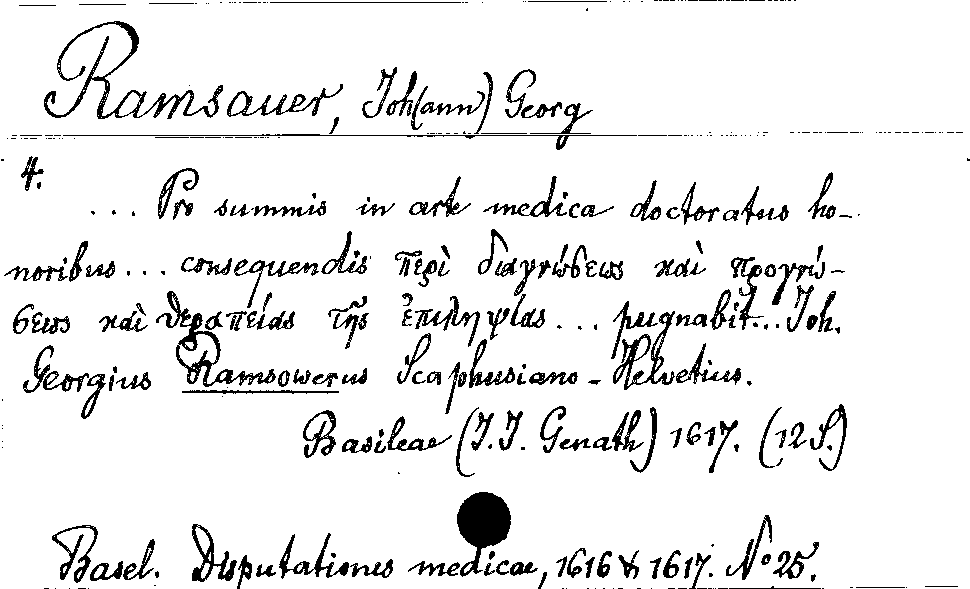 Ramsauer, Joh(ann) Georg
4.
... Pro summis in arte medica doctoratus ho-
noribus... consequendis περὶ διαγνώσεως καὶ προγνώ-
σεως καὶ θεραπείας τῆς ἐπιληψίας... pugnabit... Joh.
Georgius Ramsowerus Scaphusiano-Helvetius.
Basileae (J.J. Genath) 1617. (12 S.)
Basel. Disputationes medicae, 1616 & 1617. No 25.